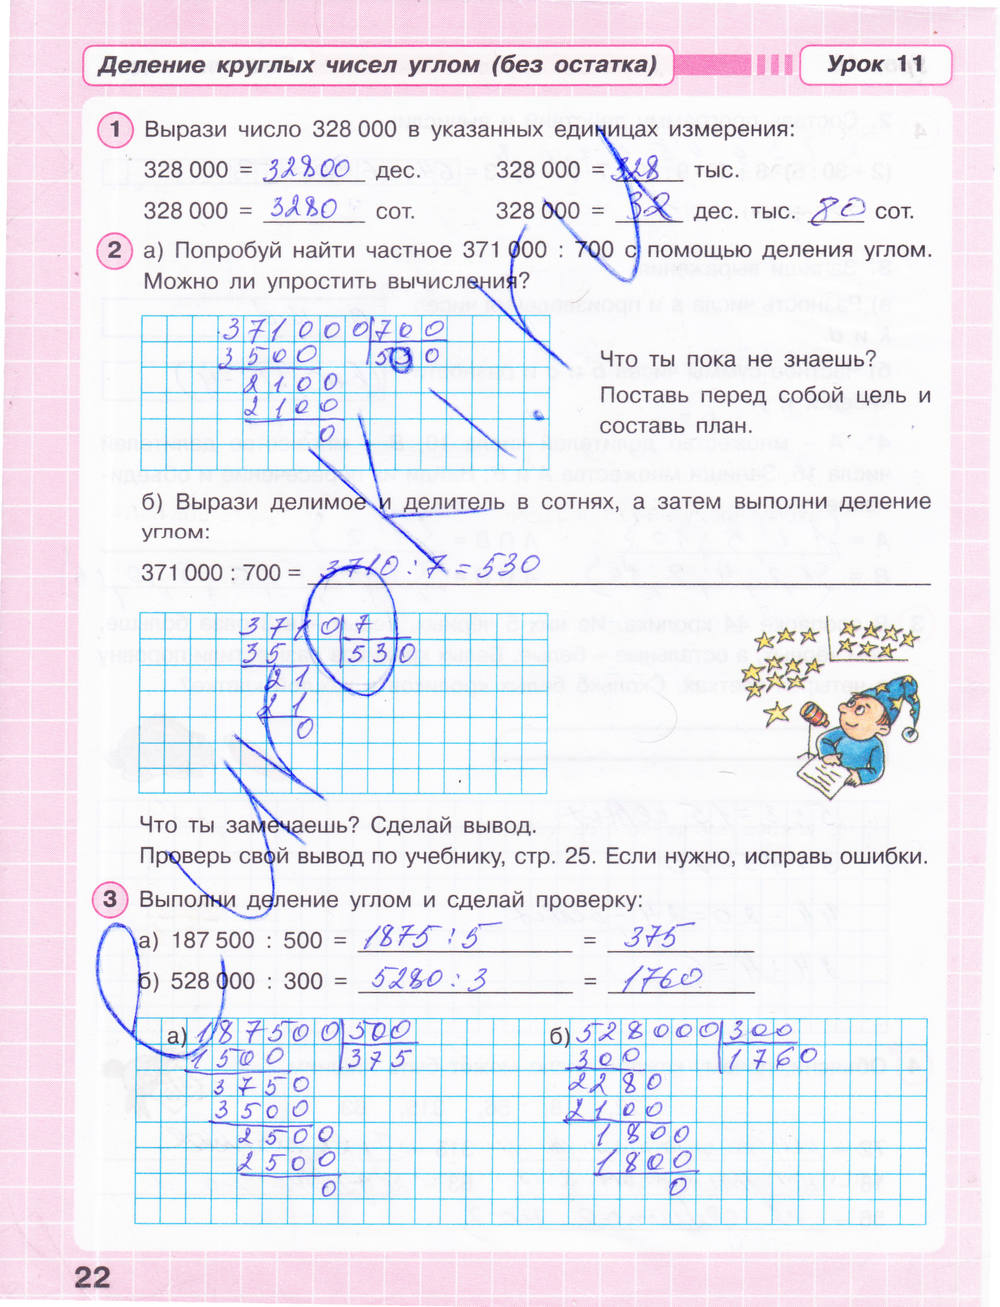 Деление круглых чисел углом (без остатка)
Урок 11
1 Вырази число 328 000 в указанных единицах измерения:
328 000 = 32800 дес. 328 000 = 328 тыс.
328 000 = 3280 сот. 328 000 = 32 дес. тыс. 80 сот.
2 а) Попробуй найти частное 371 000 : 700 с помощью деления углом.
Можно ли упростить вычисления?
371000 700
3500 530
2100
2100
0
Что ты пока не знаешь?
Поставь перед собой цель и
составь план.
б) Вырази делимое и делитель в сотнях, а затем выполни деление
углом:
371 000 : 700 = 3710 : 7 = 530
3710 7
35 530
21
21
0
Что ты замечаешь? Сделай вывод.
Проверь свой вывод по учебнику, стр. 25. Если нужно, исправь ошибки.
3 Выполни деление углом и сделай проверку:
а) 187 500 : 500 = 1875 : 5 = 375
б) 528 000 : 300 = 5280 : 3 = 1760
а) 187500 500
1500 375
3750
3500
2500
2500
0
б) 528000 300
300 1760
2280
2100
1800
1800
0
22